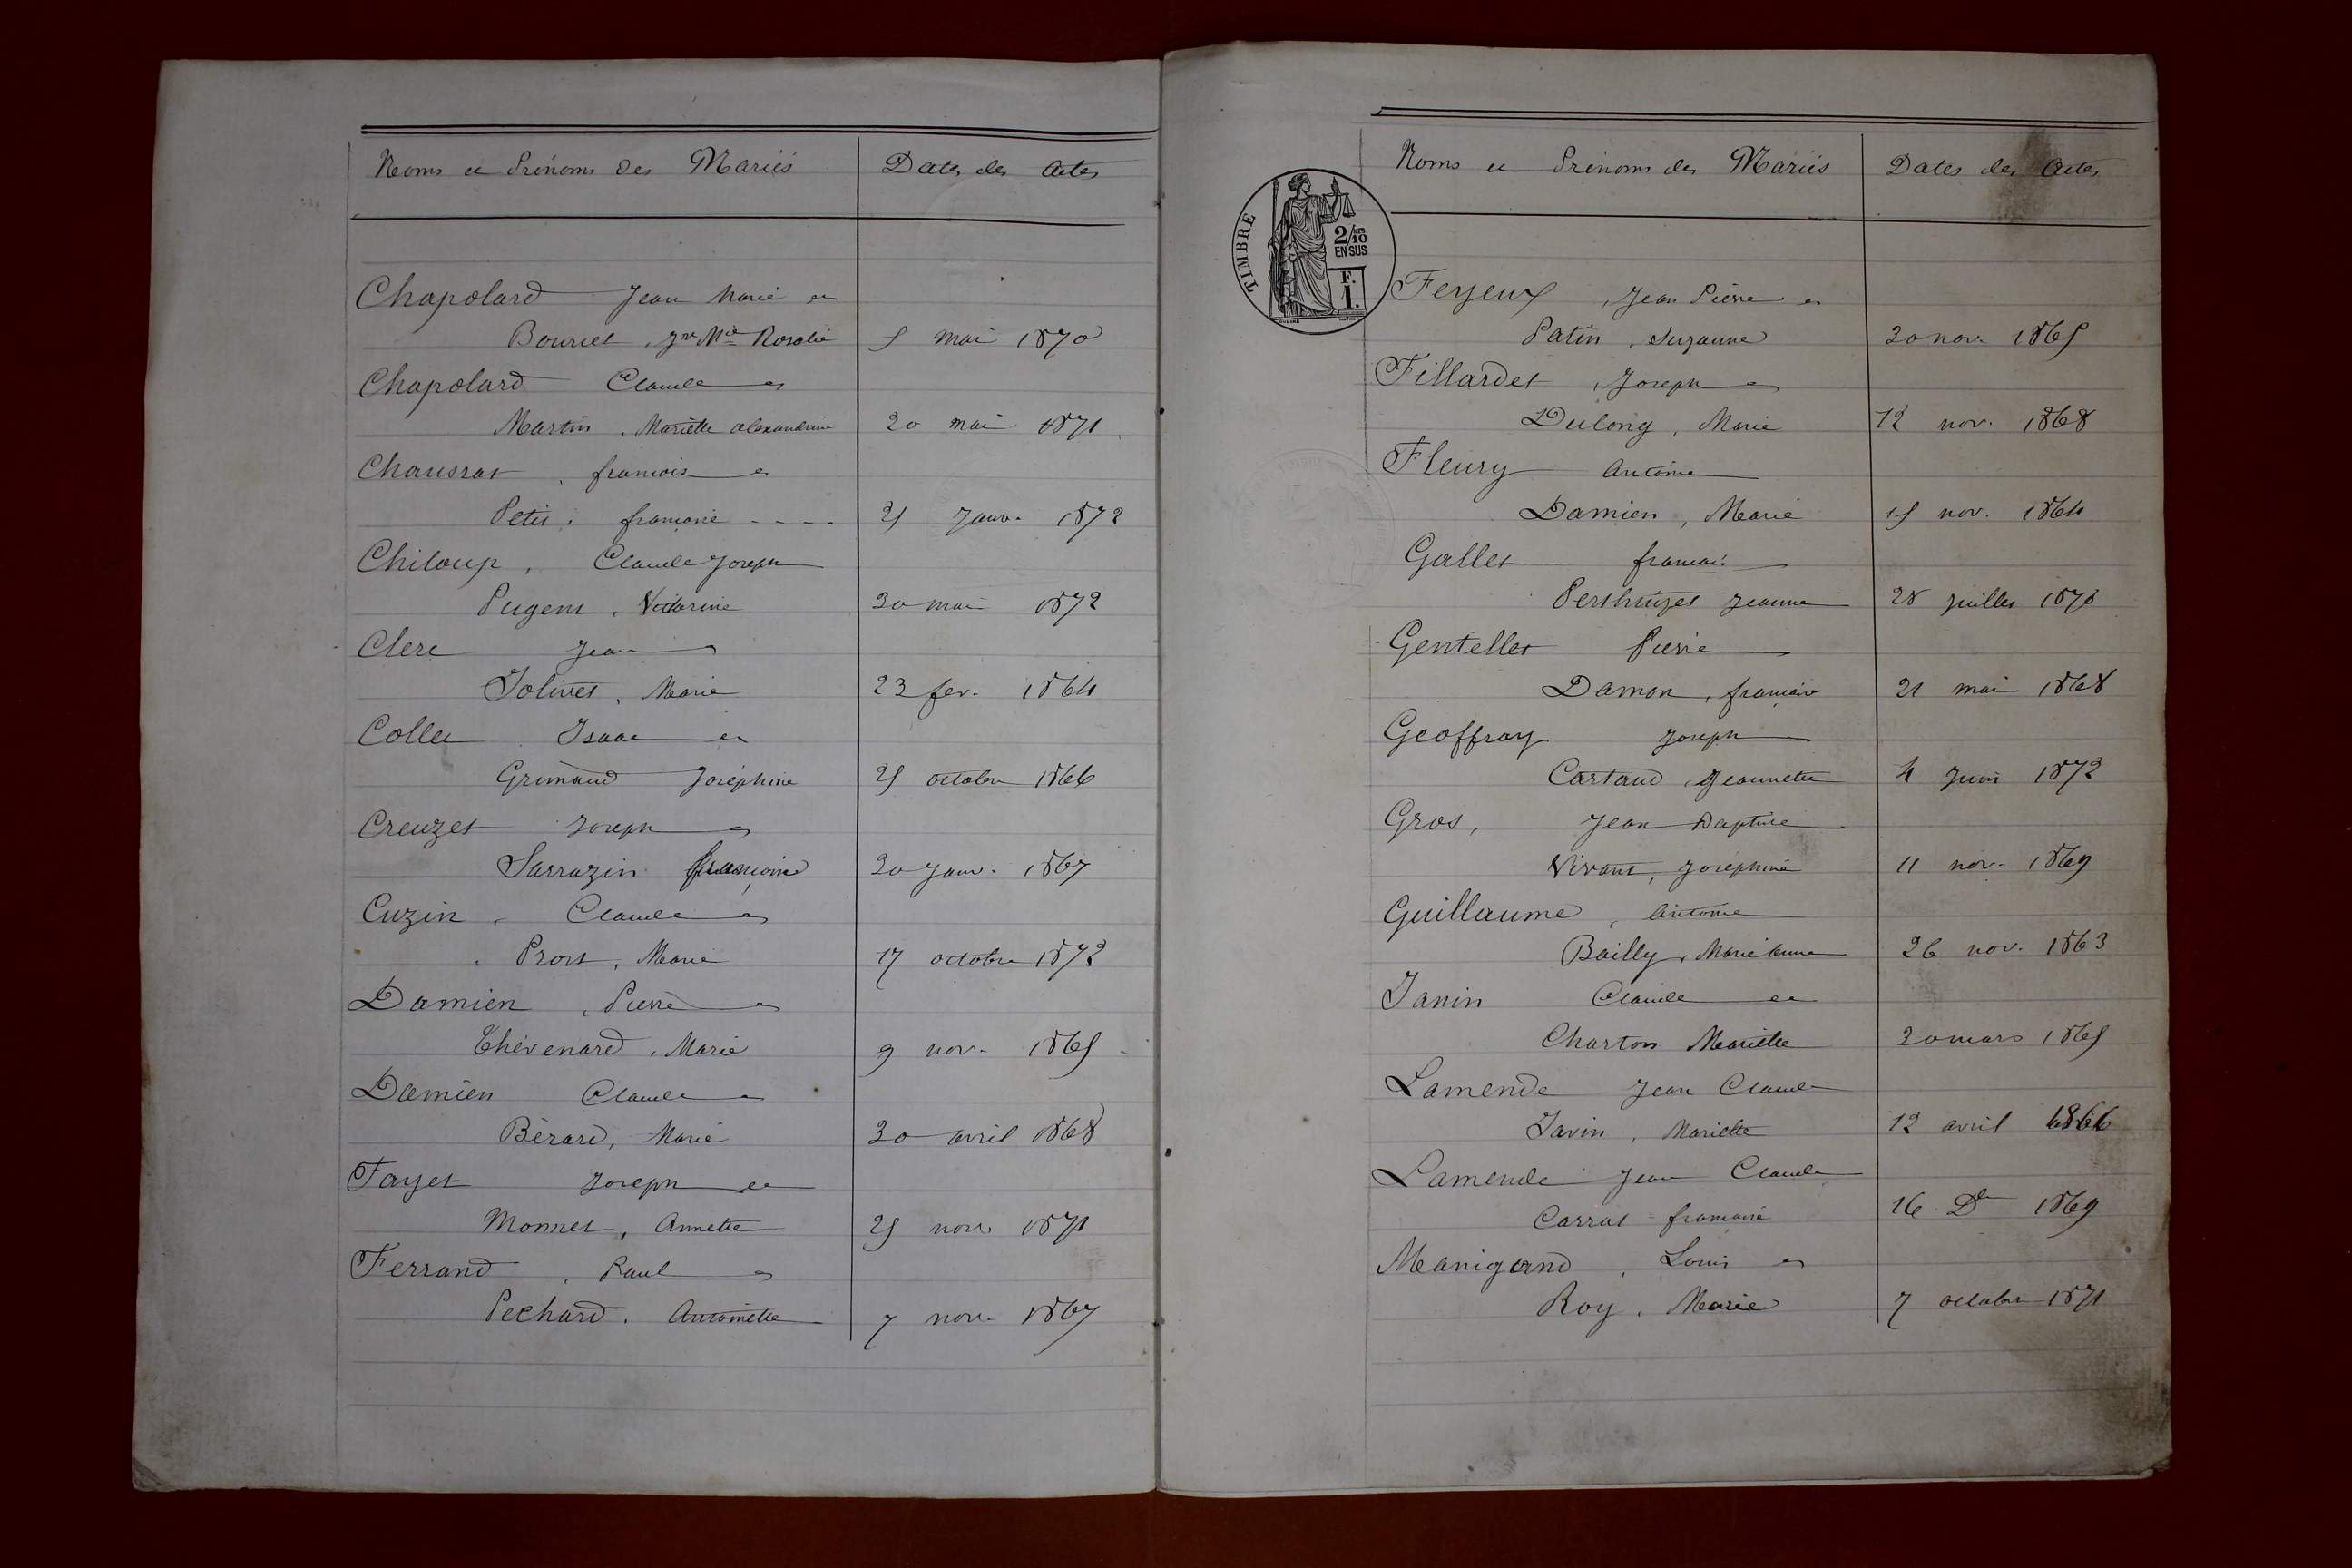 Noms et Prénoms des Mariés Dates des Actes
Chapolard Jean Marie et
Bourret, Jne Mie Rosalie 5 mai 1870
Chapolard Claude et
Martin, Mariette alexandrine 20 mai 1871
Chaussat, francois et
Petit, francoise - - - - 25 Janv. 1872
Chiloup, Claude Joseph
Pugent, Victorine 30 mai 1872
Clerc Jean
Jolivet, Marie 23 fev. 1864
Collet Isaac et
Grimaud Joséphine 25 octobre 1866
Creuzet Joseph et
Sarrazin françoise 30 Janv. 1867
Cuzin, Claude et
Prost, Marie 17 octobre 1872
Damien, Pierre et
Thévenard, Marie 9 nov. 1865
Damien Claude et
Bérard, Marie 30 avril 1868
Fayet Joseph et
Monnet, Annette 25 nov. 1871
Ferrand, Paul et
Pechard, Antoinette 7 nov. 1867
Noms et Prénoms des Mariés Dates des Actes
TIMBRE
2/10
EN SUS
F.
1.
Feyeux, Jean Pierre et
Patin, Suzanne 30 nov. 1865
Fillardet, Joseph et
Dulong, Marie 12 nov. 1868
Fleury Antoine
Damien, Marie 15 nov. 1864
Gallet francois
Jeanne 28 juillet 1870
Gentellet Pierre
Damon, françoise 21 mai 1868
Geoffray Joseph
Cartaud, Jeannette 4 Juin 1872
Gros, Jean Baptiste
Vivant, Joséphine 11 nov. 1869
Guillaume, Antoine
Bailly, Marie Anne 26 nov. 1863
Janin Claude et
Charton Mariette 30 mars 1865
Lamende Jean Claude
Javin, Mariette 12 avril 1866
Lamende Jean Claude
Carrat francoise 16 Dbre 1869
Manigand, Louis et
Roy, Marie 7 octobre 1871